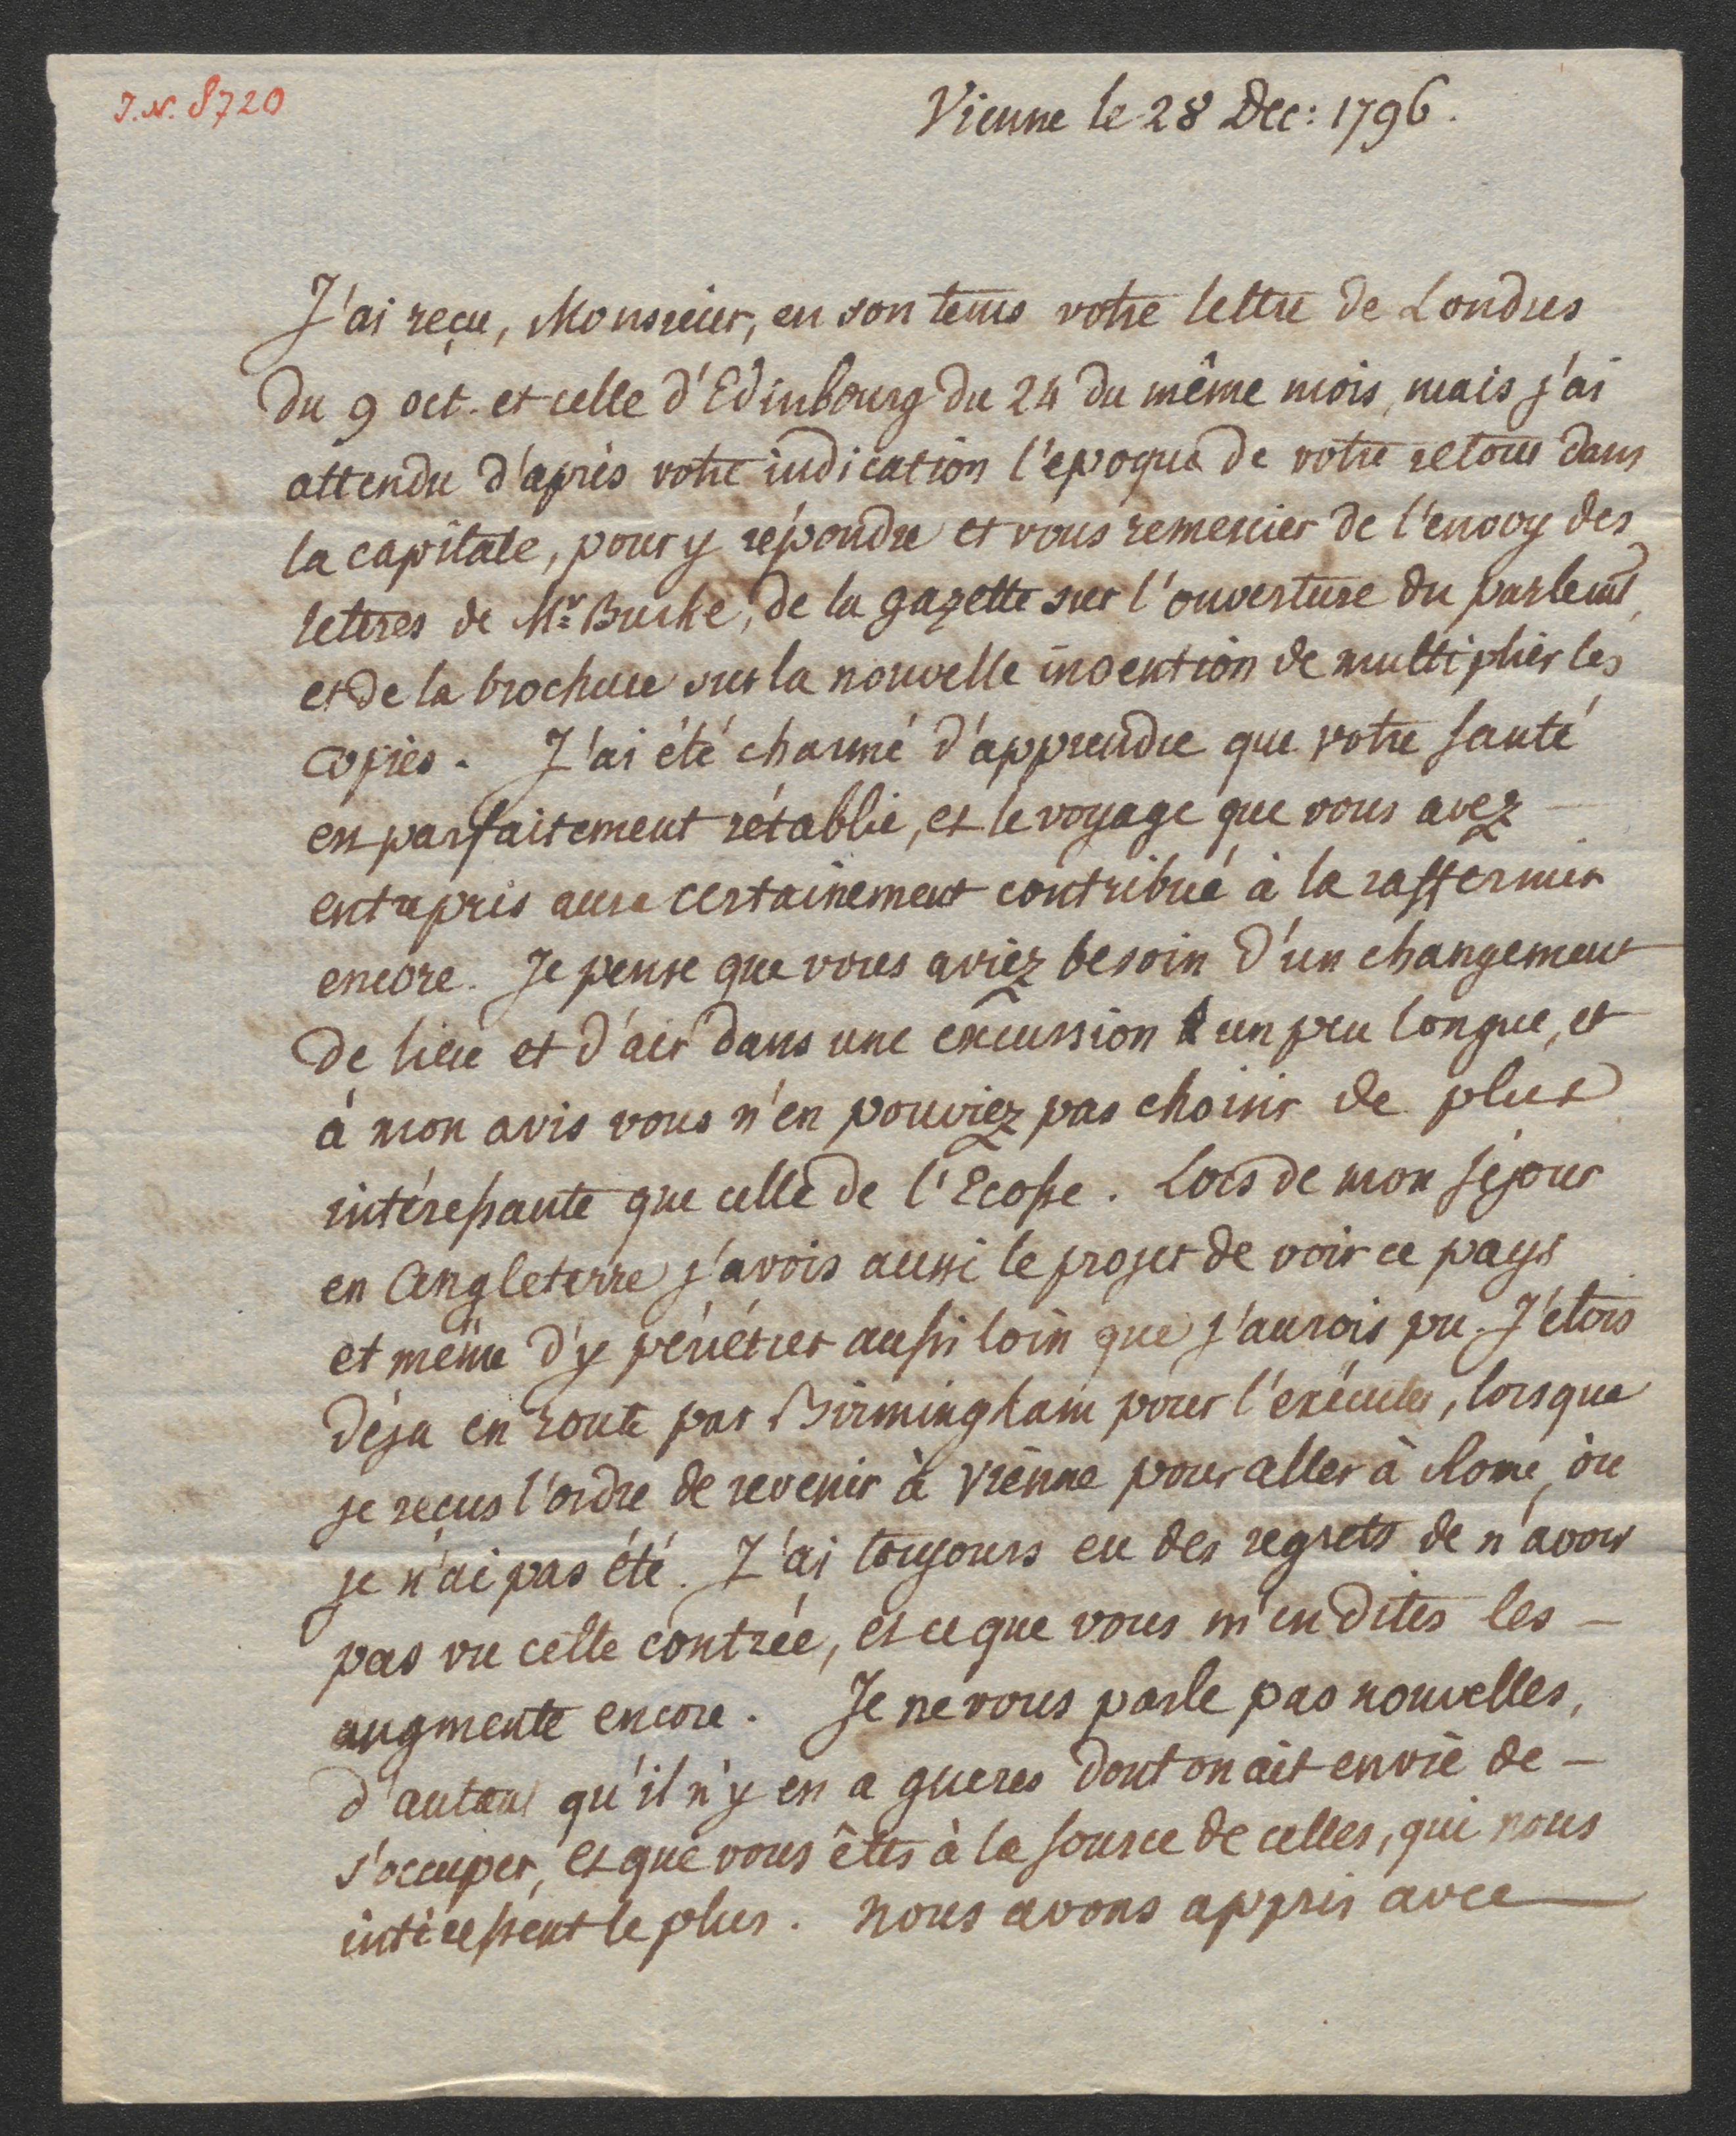 J.N. 8720
Vienne le 28 Dec: 1796.
J'ai reçu, Monsieur, en son tems votre lettre de Londres
du 9 oct. et celle d'Edinbourg du 24 du même mois, mais j'ai
attendu d'après votre indication l'epoque de votre retour dans
la capitale, pour y répondre et vous remercier de l'envoy des
lettres de Mr Burke, de la gazette sur l'ouverture du parlemt,
et de la brochure sur la nouvelle invention de multiplier les
copies. J'ai été charmé d'apprendre que votre santé
est parfaitement rétablie, et le voyage que vous avez
entrepris aura certainement contribué à la raffermir
encore. Je pense que vous aviez besoin d'un changement
de lieu et d'air dans une excursion un peu longue, et
à mon avis vous n'en pouviez pas choisir de plus
intéressante que celle de l'Ecosse. Lors de mon séjour
en Angleterre j'avois aussi le projet de voir ce pays
et même d'y pénétrer aussi loin que j'aurois pu. J'étois
déja en route par Birmingham pour l'exécuter, lorsque
je reçus l'ordre de revenir à Vienne pour aller à Rome, où
je n'ai pas été. J'ai toujours eu des regrets de n'avoir
pas vu cette contrée, et ce que vous m'en dites les –
augmente encore. Je ne vous parle pas nouvelles,
d'autant qu'il n'y en a gueres dont on ait envie de –
s'occuper, et que vous êtes à la source de celles, qui nous
intéressent le plus. Nous avons appris avec